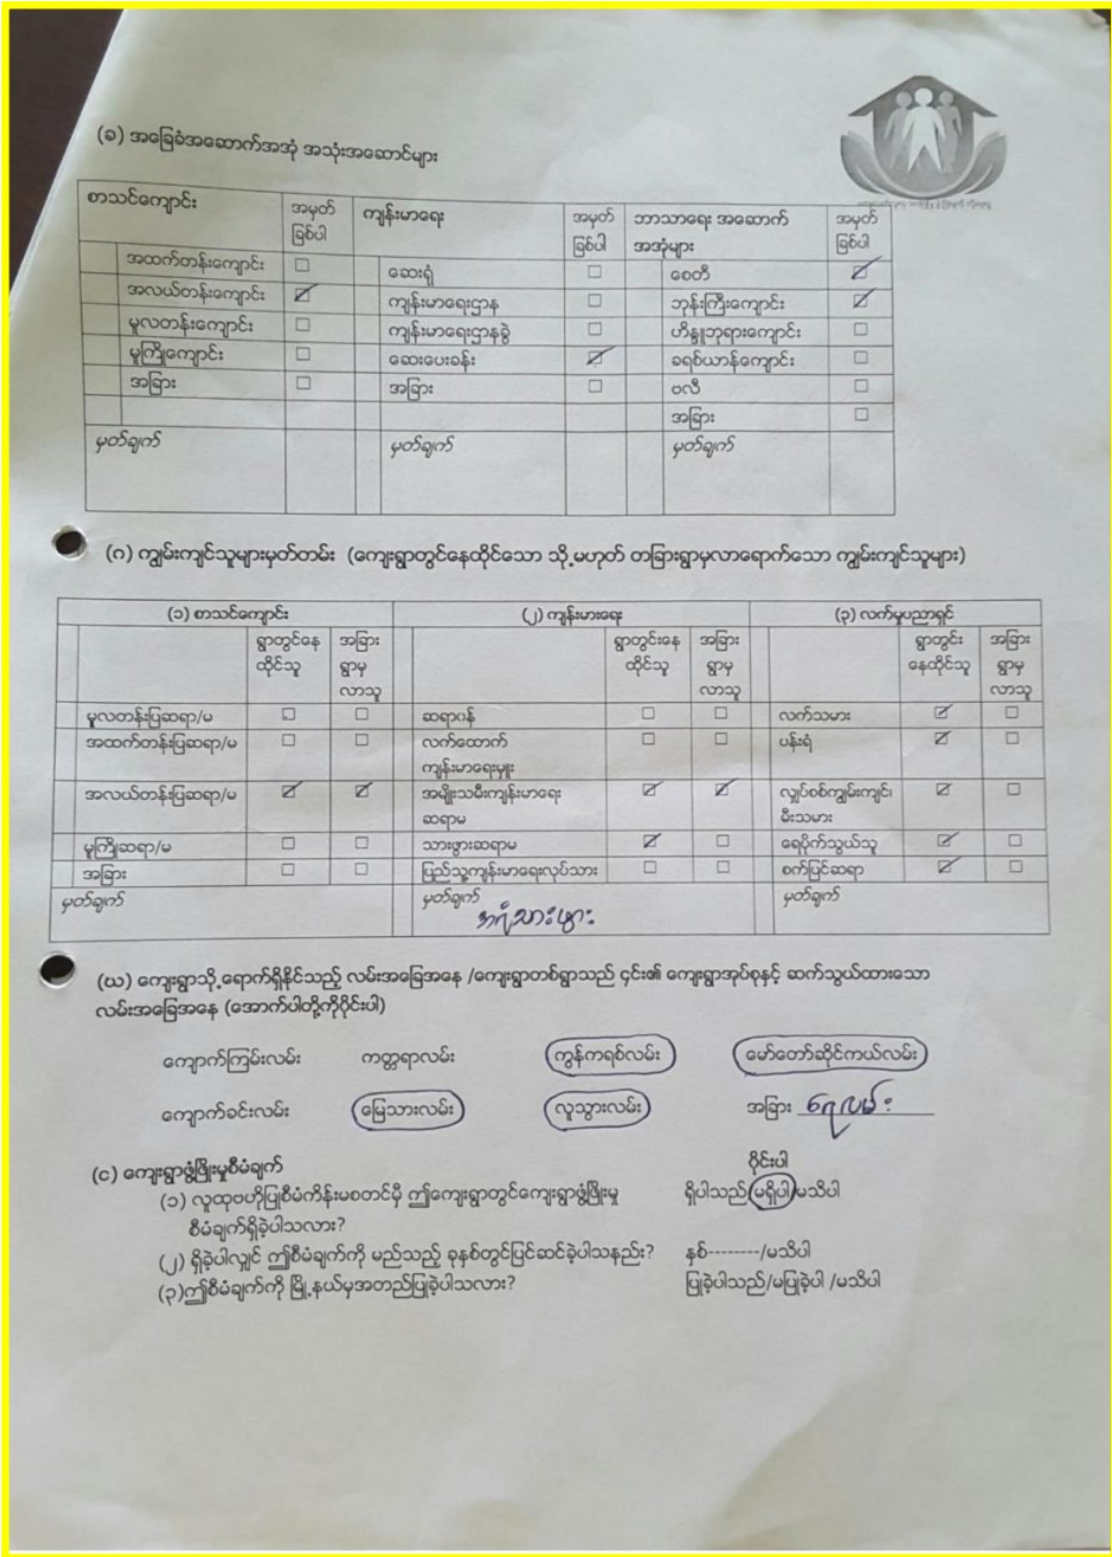 (ခ) အခြေခံအဆောက်အအုံ အသုံးအဆောင်များ
စာသင်ကျောင်း အမှတ်ခြစ်ပါ ကျန်းမာရေး အမှတ်ခြစ်ပါ ဘာသာရေး အဆောက်အအုံများ အမှတ်ခြစ်ပါ
အထက်တန်းကျောင်း ☐ ဆေးရုံ ☐ စေတီ ☑
အလယ်တန်းကျောင်း ☑ ကျန်းမာရေးဌာန ☐ ဘုန်းကြီးကျောင်း ☑
မူလတန်းကျောင်း ☐ ကျန်းမာရေးဌာနခွဲ ☐ ဟိန္ဒူဘုရားကျောင်း ☐
မူကြိုကျောင်း ☐ ဆေးပေးခန်း ☑ ခရစ်ယာန်ကျောင်း ☐
အခြား ☐ အခြား ☐ ဗလီ ☐
အခြား ☐
မှတ်ချက် မှတ်ချက် မှတ်ချက်
(ဂ) ကျွမ်းကျင်သူများမှတ်တမ်း (ကျေးရွာတွင်နေထိုင်သော သို့မဟုတ် တခြားရွာမှလာရောက်သော ကျွမ်းကျင်သူများ)
(၁) စာသင်ကျောင်း (၂) ကျန်းမားရေး (၃) လက်မှုပညာရှင်
ရွာတွင်နေထိုင်သူ အခြားရွာမှလာသူ ရွာတွင်းနေထိုင်သူ အခြားရွာမှလာသူ ရွာတွင်းနေထိုင်သူ အခြားရွာမှလာသူ
မူလတန်းပြဆရာ/မ ☐ ☐ ဆရာဝန် ☐ ☐ လက်သမား ☑ ☐
အထက်တန်းပြဆရာ/မ ☐ ☐ လက်ထောက်ကျန်းမာရေးမှူး ☐ ☐ ပန်းရံ ☑ ☐
အလယ်တန်းပြဆရာ/မ ☑ ☑ အမျိုးသမီးကျန်းမာရေးဆရာမ ☑ ☑ လျှပ်စစ်ကျွမ်းကျင်၊ မီးသမား ☑ ☐
မူကြိုဆရာ/မ ☐ ☐ သားဖွားဆရာမ ☑ ☐ ရေပိုက်သွယ်သူ ☑ ☐
အခြား ☐ ☐ ပြည်သူ့ကျန်းမာရေးလုပ်သား ☐ ☐ စက်ပြင်ဆရာ ☑ ☐
မှတ်ချက် မှတ်ချက် မှတ်ချက်
အရံသားဖွား
(ဃ) ကျေးရွာသို့ရောက်ရှိနိုင်သည့် လမ်းအခြေအနေ /ကျေးရွာတစ်ရွာသည် ၎င်း၏ ကျေးရွာအုပ်စုနှင့် ဆက်သွယ်ထားသော
လမ်းအခြေအနေ (အောက်ပါတို့ကိုဝိုင်းပါ)
ကျောက်ကြမ်းလမ်း ကတ္တရာလမ်း ကွန်ကရစ်လမ်း မော်တော်ဆိုင်ကယ်လမ်း
ကျောက်ခင်းလမ်း မြေသားလမ်း လူသွားလမ်း အခြား ရေလမ်း
(င) ကျေးရွာဖွံ့ဖြိုးမှုစီမံချက် ဝိုင်းပါ
(၁) လူထုဗဟိုပြုစီမံကိန်းမစတင်မှီ ဤကျေးရွာတွင်ကျေးရွာဖွံ့ဖြိုးမှု ရှိပါသည်/မရှိပါ/မသိပါ
စီမံချက်ရှိခဲ့ပါသလား?
(၂) ရှိခဲ့ပါလျှင် ဤစီမံချက်ကို မည်သည့် ခုနှစ်တွင်ပြင်ဆင်ခဲ့ပါသနည်း? နှစ်--------/မသိပါ
(၃)ဤစီမံချက်ကို မြို့နယ်မှအတည်ပြုခဲ့ပါသလား? ပြုခဲ့ပါသည်/မပြုခဲ့ပါ /မသိပါ